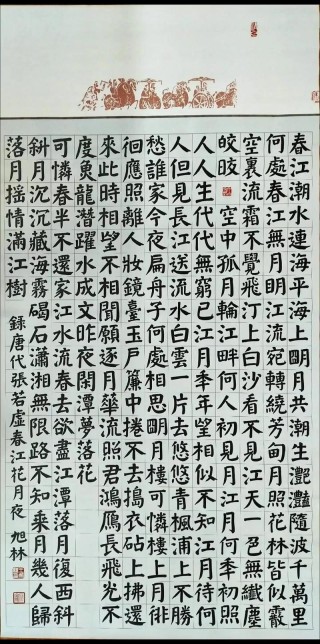 春江潮水連海平海上朙月共潮生灧灧隨波千萬里
何處春江無月朙江流宛轉繞芳甸月照花林皆似霰
空裏流霜不覺飛汀上白沙看不見江天一色無纖塵
皎皎空中孤月輪江畔何人初見月江月何年初照
人人生代代無窮已江月年年望相似不知江月待何
人但見長江送流水白雲一片去悠悠青楓浦上不勝
愁誰家今夜扁舟子何處相思朙月樓可憐樓上月徘
徊應照離人妝鏡臺玉戶簾中捲不去搗衣砧上拂還
來此時相望不相聞願逐月華流照君鴻鴈長飛光不
度魚龍潛躍水成文昨夜閑潭夢落花
可憐春半不還家江水流春去欲盡江潭落月復西斜
斜月沉沉藏海霧碣石瀟湘無限路不知乘月幾人歸
落月搖情滿江樹 錄唐代張若虛春江花月夜 旭林